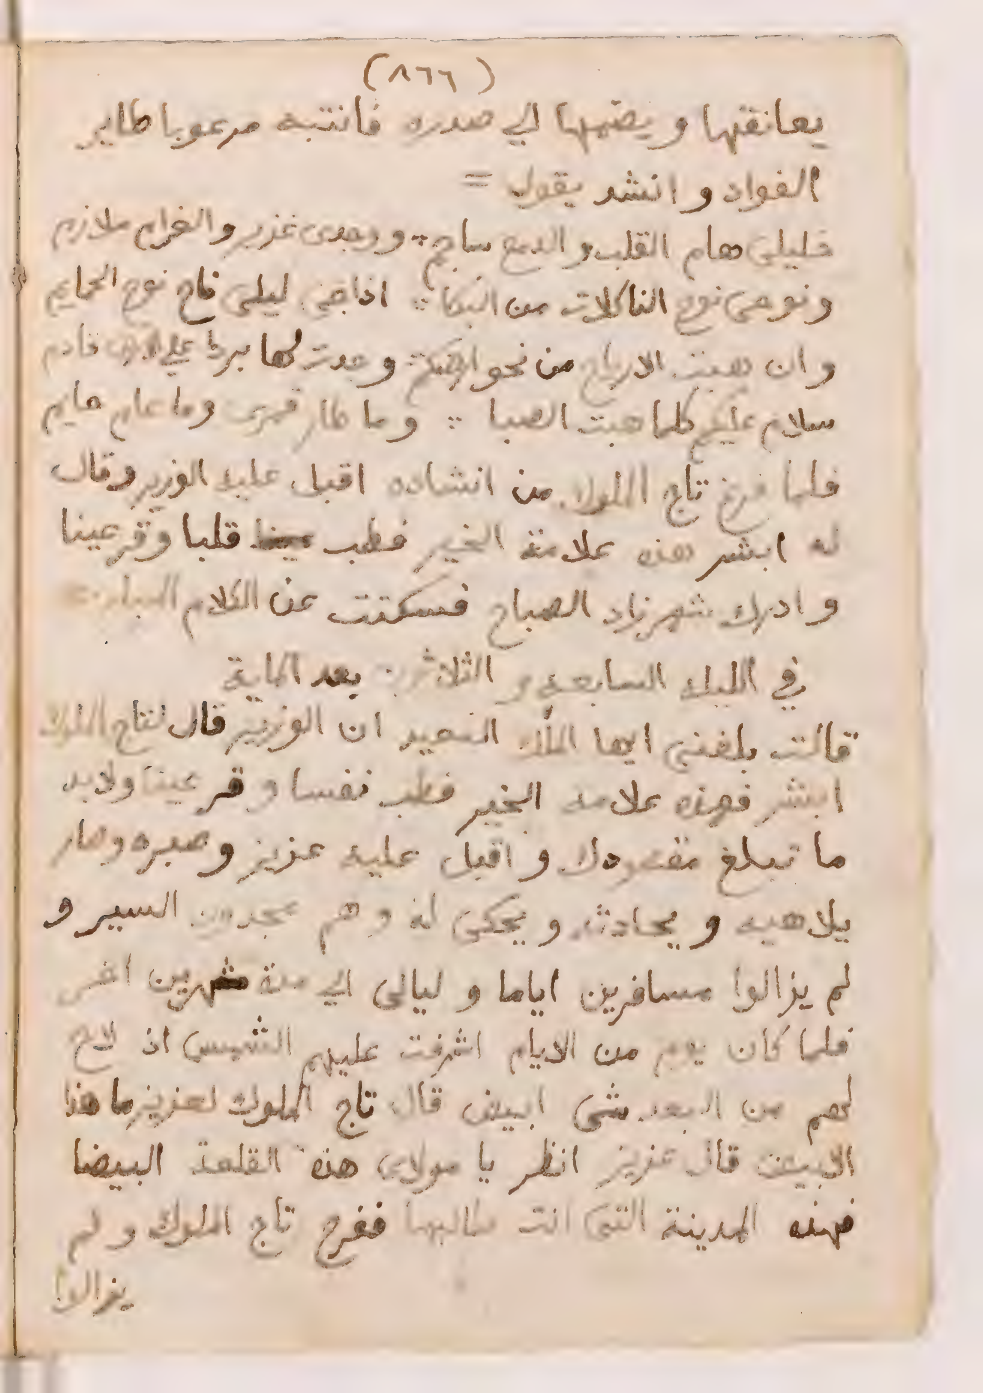 (٨٦٦)
يعانقها و يضمها الي صدره فانتبه مرعوبا طاير
الفواد و انشد يقول =
خليلي هام القلب و الدمع ساجم ∴ و وجدي غزير و الغرام ملازم
و نوحي نوح الثاكلات من البكا ∴ اذا جن ليلي ناح نوح الحمايم
و ان هبت الارياح من نحو ارضكم ∴ وجدت لها بردا علي الارض قادم
سلام عليكم كلما هبت الصبا ∴ و ما طار قمري وما حايم
فلما فرغ تاج الملوك من انشاده اقبل عليه الوزير وقال
له ابشر هذه علامة الخير فطب قلبا وقر عينا
و ادرك شهرزاد الصباح فسكتت عن الكلام المباح =
في الليلة السابعة و الثلاثين بعد الماية
قالت بلغني ايها الملك السعيد ان الوزير قال لتاج الملوك
ابشر فهذه علامة الخير فطب نفسا و قر عينا ولابد
ما تبلغ مقصودك و اقبل عليه عزيز و صبره وصار
يلاهيه و يحادثه و يحكي له و هم مجدون السير و
لم يزالوا مسافرين اياما و ليالي الي مدة شهرين اخر
فلما كان يوم من الايام اشرفت عليهم الشمس اذ لاح
لهم من البعد شي ابيض قال تاج الملوك لعزيز ما هذا
الابيض قال عزيز انظر يا مولاي هذه القلعة البيضا
فهذه المدينة التي انت طالبها ففرح تاج الملوك و لم
يزالوا